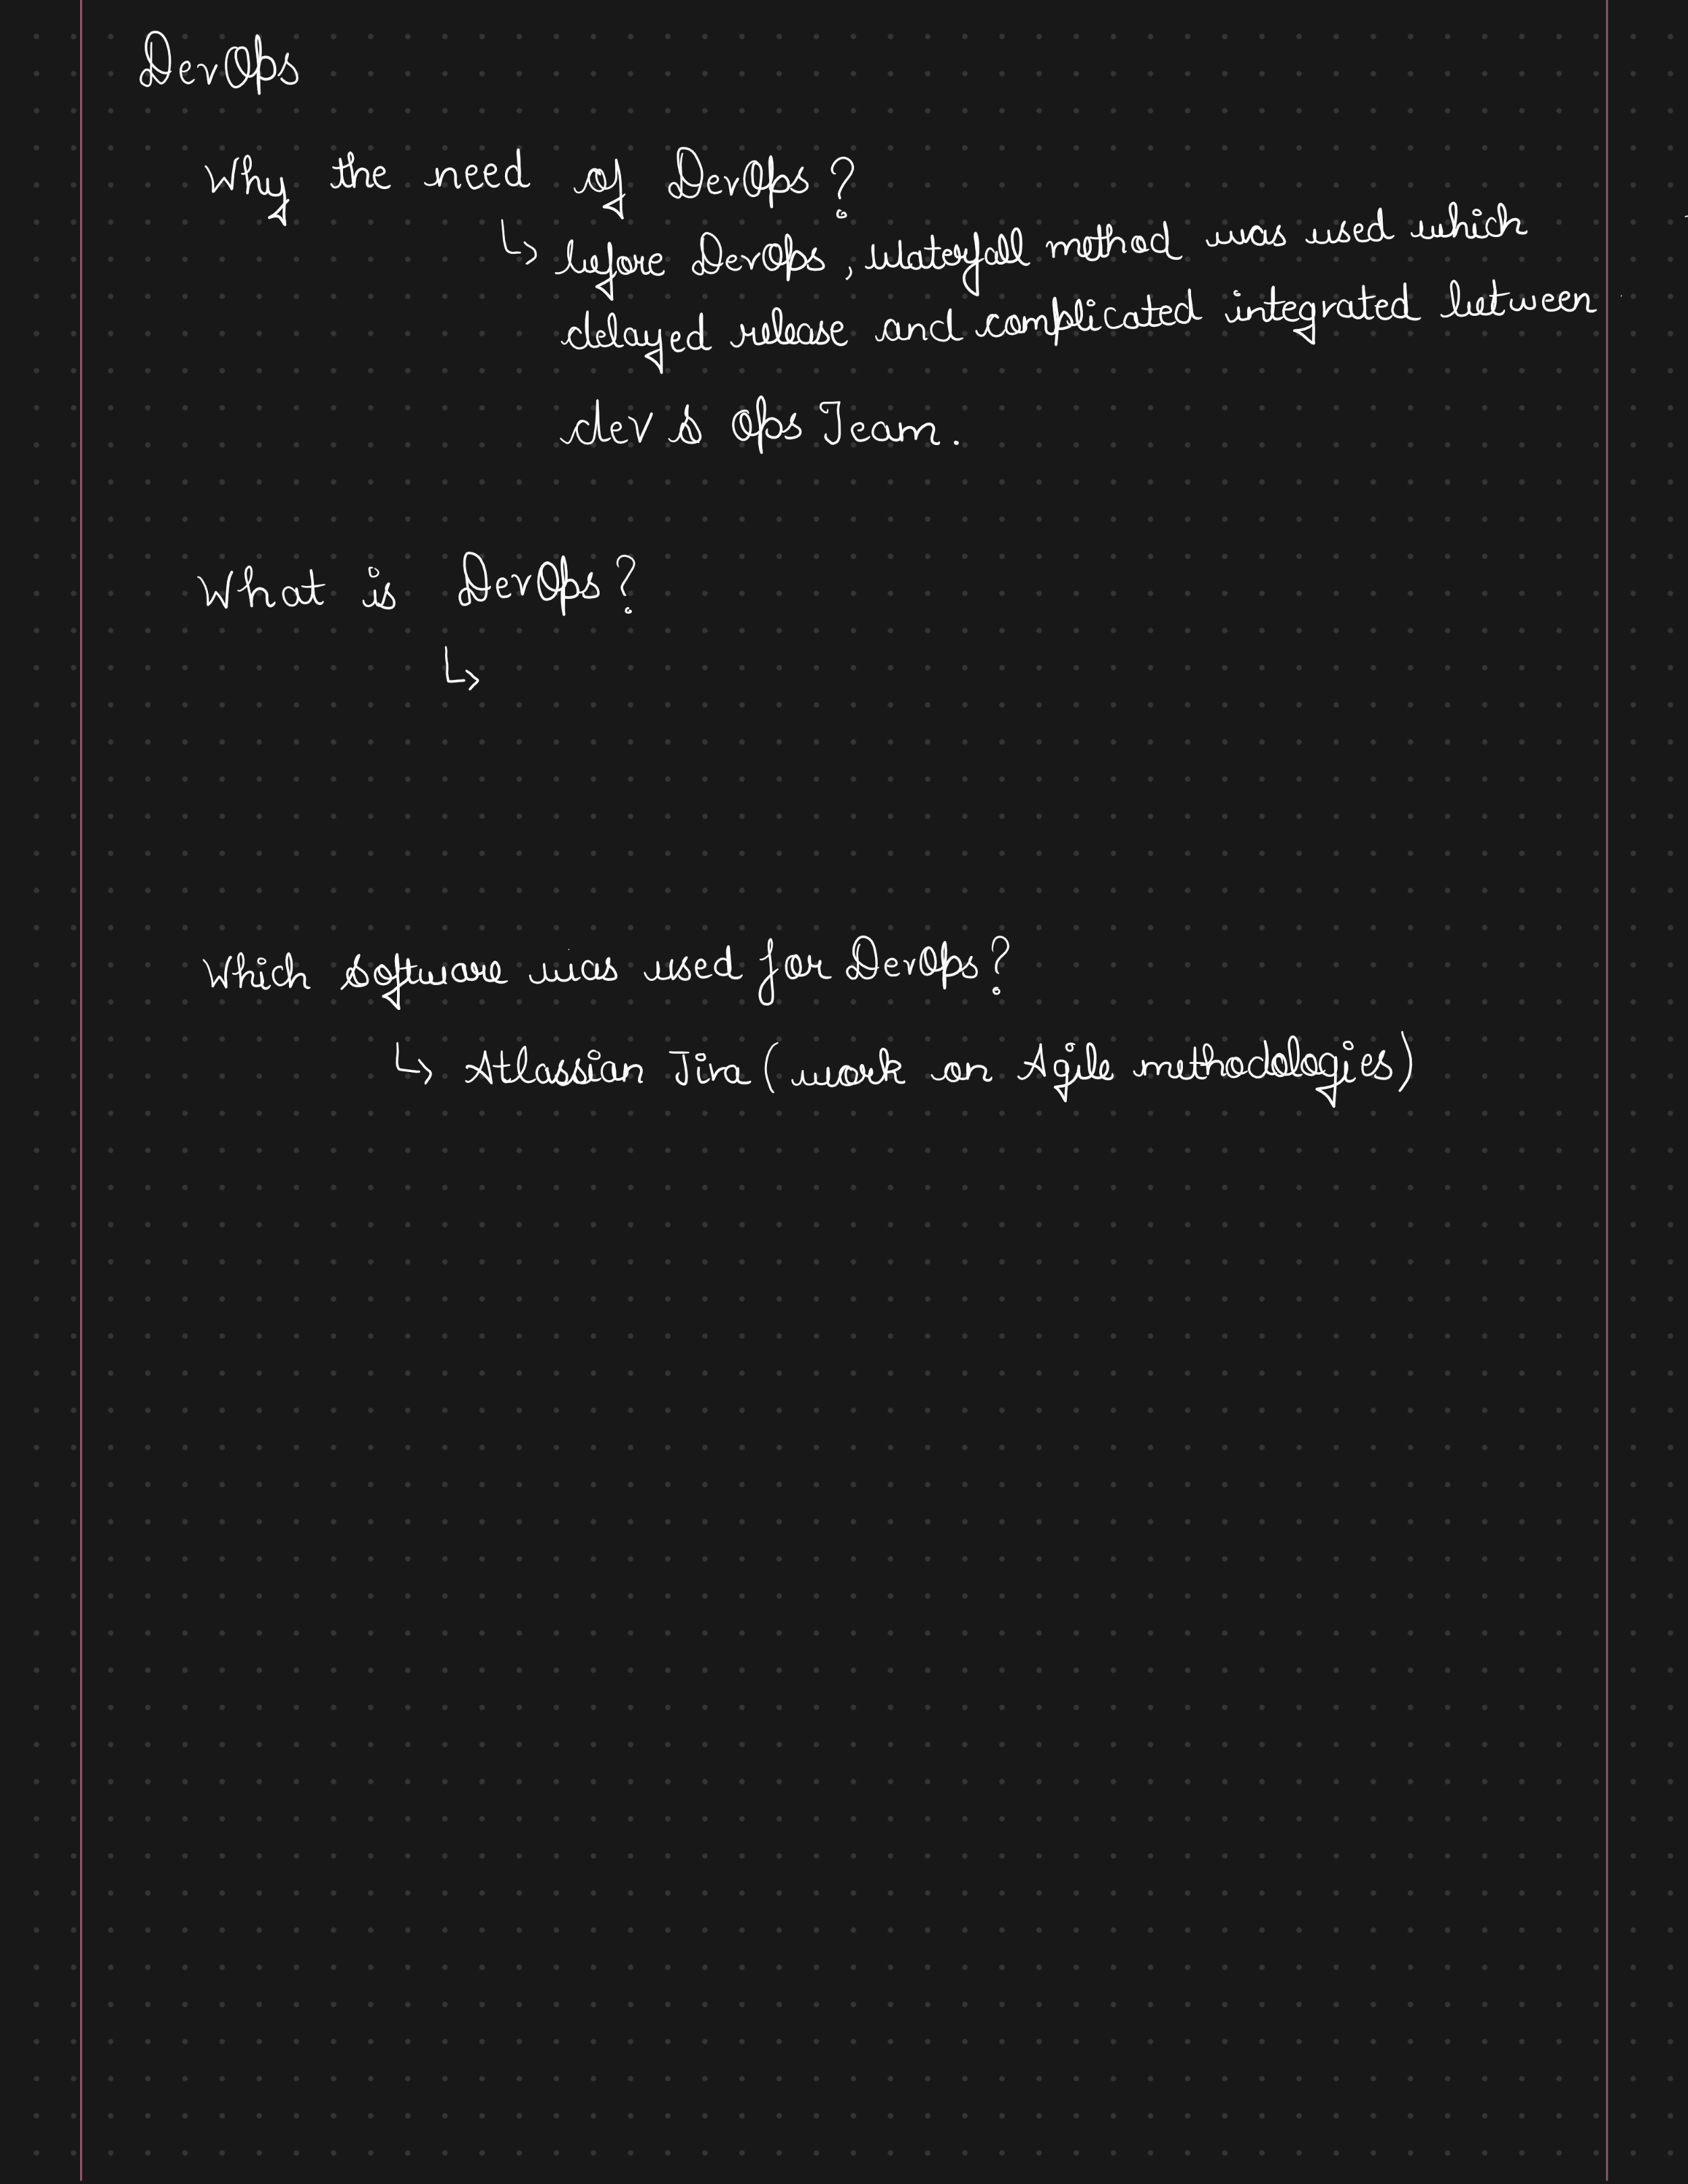 DevOps
Why the need of DevOps?
↳ before DevOps, Waterfall method was used which
delayed release and complicated integrated between
dev & Ops Team.
What is DevOps?
↳
Which Software was used for DevOps?
↳ Atlassian Jira (work on Agile methodologies)